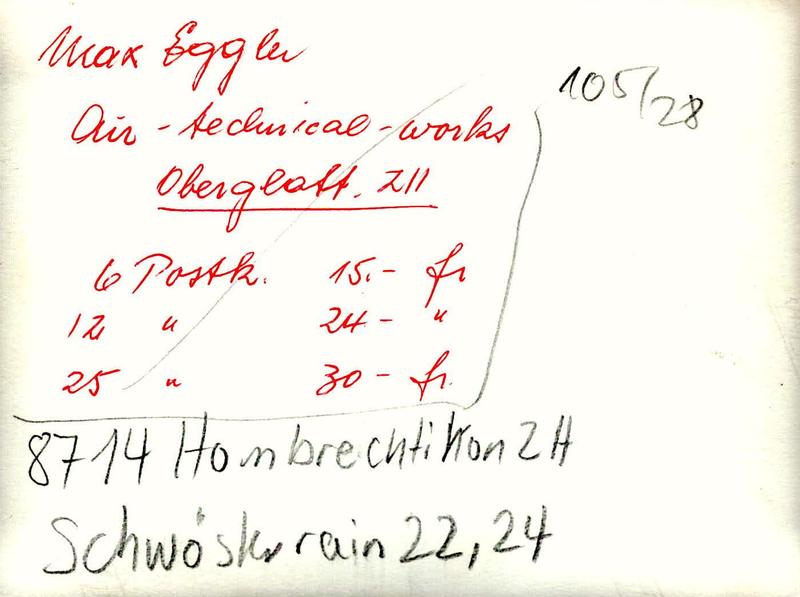 Max Eggler
105/28
Air-technical-works
Oberglatt. ZH
6 Postk. 15.- fr
12 " 24- "
25 " 30- fr.
8714 Hombrechtikon ZH
Schwösterrain 22, 24